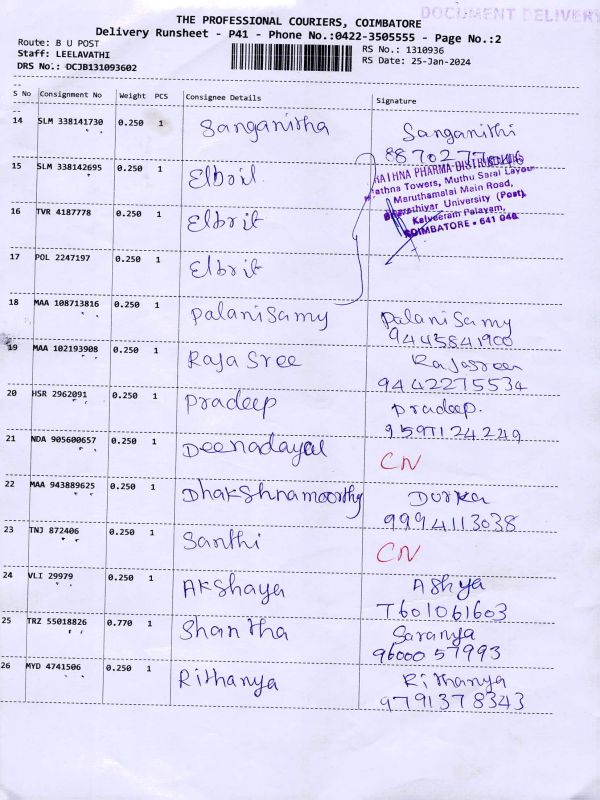 DOCUMENT DELIVERY
THE PROFESSIONAL COURIERS, COIMBATORE
Delivery Runsheet - P41 - Phone No.:0422-3505555 - Page No.:2
Route: B U POST
RS No.: 1310936
Staff: LEELAVATHI
RS Date: 25-Jan-2024
DRS No.: DCJB131093602
S No Consignment No Weight PCS Consignee Details Signature
14 SLM 338141730 0.250 1 Sanganitha Sanganithi
15 SLM 338142695 0.250 1 Elboil
RATHNA PHARMA DISTRIBUTORS
Rathna Towers, Muthu Sarai Layout
Maruthamalai Main Road,
16 TVR 4187778 0.250 1 Elbrit
Bharathiyar University (Post),
Kalveeram Palayam,
COIMBATORE - 641 046
17 POL 2247197 0.250 1 Elbrit
18 MAA 108713816 0.250 1 Palanisamy Palanisamy
9445841900
19 MAA 102193908 0.250 1 Raja Sree Rajasree
9442275534
20 HSR 2962091 0.250 1 Pradeep Pradeep.
9597124249
21 NDA 905600657 0.250 1 Deenadayal CN
22 MAA 943889625 0.250 1 Dhakshnamoorthy Durka
9994113038
23 TNJ 872406 0.250 1 Santhi CN
24 VLI 29979 0.250 1 Akshaya Ashya
7601061603
25 TRZ 55018826 0.770 1 Shantha Saranya
9600057993
26 MYD 4741506 0.250 1 Rithanya Rithanya
9791378343